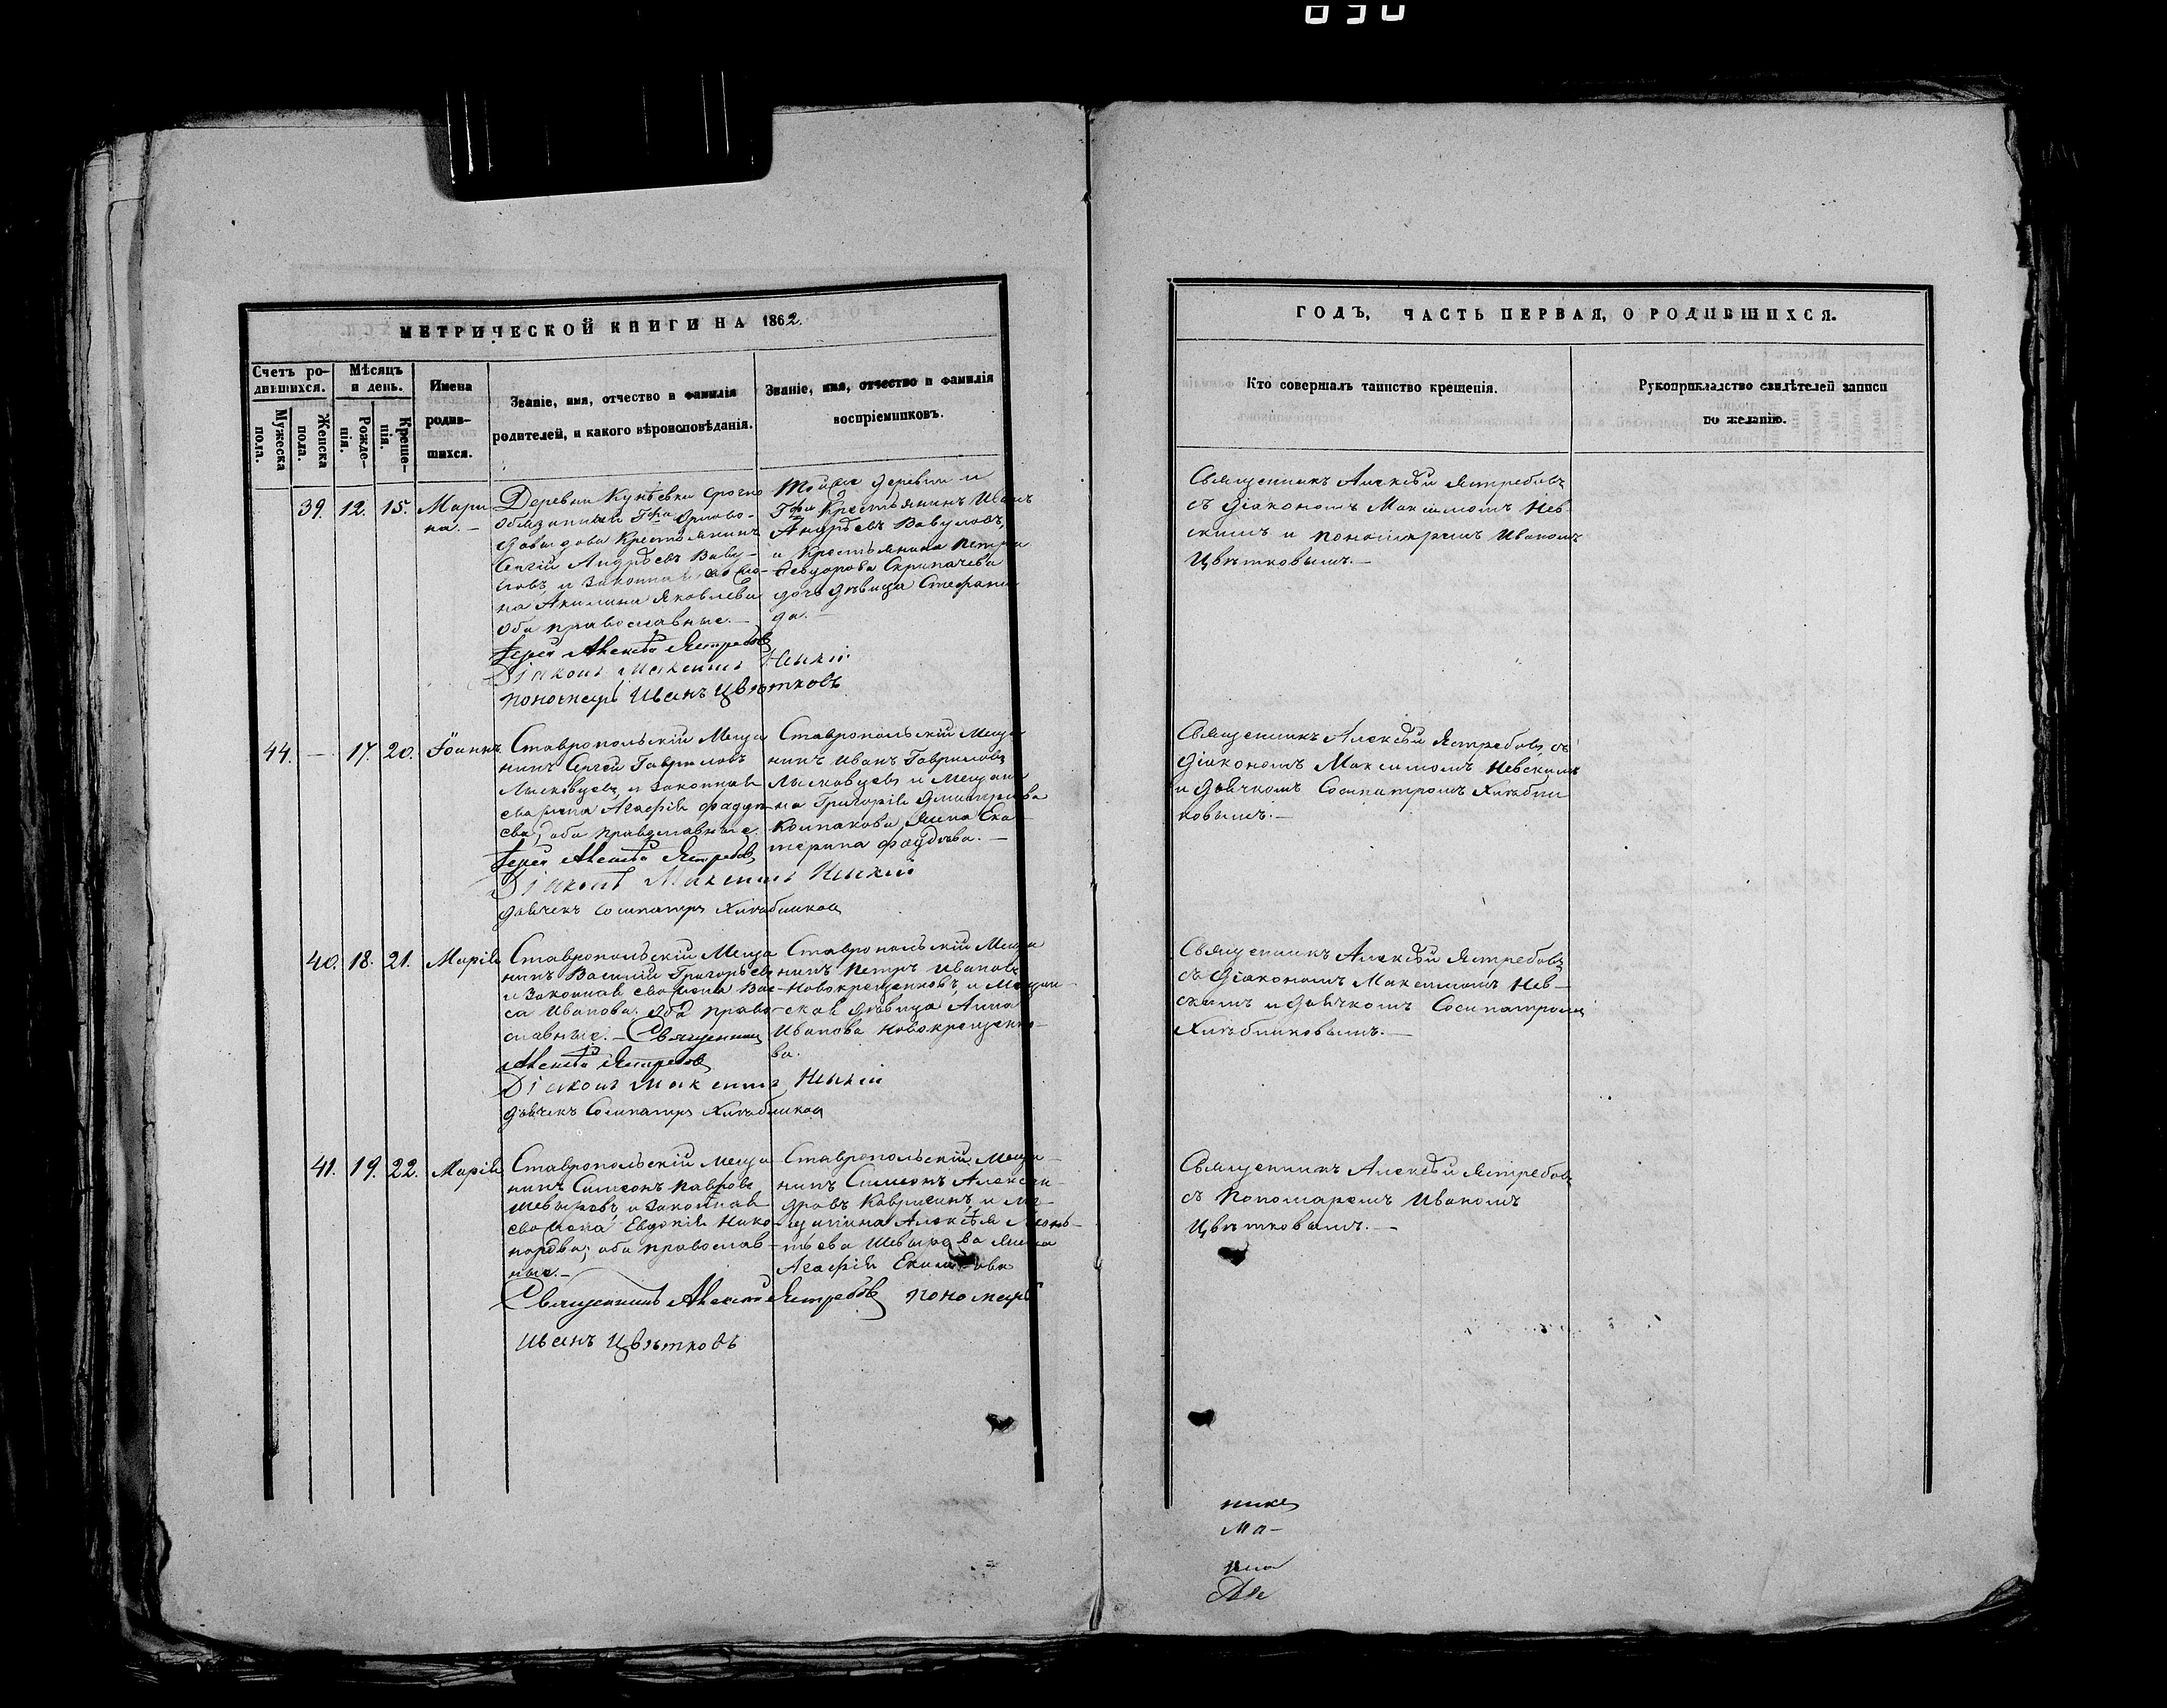 МЕТРИЧЕСКОЙ КНИГИ НА 1862.
Счетъ ро-
дившихся.
Мужеска пола.
Женска пола.
Мѣсяцъ
и день.
Рожде-
нія.
Креще-
нія.
Имена
родив-
шихся.
Званіе, имя, отчество и фамилія
родителей, и какого вѣроисповѣданія.
Званіе, имя, отчество и фамилія
воспріемниковъ.
39. 12. 15. Мари
на. –
Деревни Кунѣевки срочно
обязанный Г-на Орлово-
Давыдова Крестьянинъ
Сергій Андреевъ Вави-
ловъ, и законная его же-
на Акилина Яковлева
оба православные. –
Іерей Алексѣй Ястребовъ
Діаконъ Максимъ Невскій
пономарь Иванъ Цвѣтковъ
Той же деревни и
Г-на Крестьянинъ Иванъ
Андреевъ Вавиловъ,
и Крестьянина Петра
Ѳеодорова Скрипачева
дочь дѣвица Степани
да. –
44. – 17. 20. Іоаннъ
Ставропольскій Меща
нинъ Сергей Гавриловъ
Лысковцевъ, и законная
его жена Агафія
оба православные.
Іерей Алексѣй Ястребовъ
Діаконъ Максимъ Невскій
дьячекъ Сосипатръ Хлѣбниковъ
Ставропольскій Меща
нинъ Иванъ Гавриловъ
Лысковцевъ и Мещани
на Григорія Димитріева
Колпакова жена Ека
терина
40. 18. 21. Марія
Ставропольскій Меща
нинъ Василій Григорьевъ
и законная его жена Вас
са Иванова. Оба право
славные. – Священникъ
Алексѣй Ястребовъ
Діаконъ Максимъ Невскій
дьячекъ Сосипатръ Хлѣбниковъ
Ставропольскій Меща
нинъ Петръ Ивановъ
Новокрещенновъ, и Мещан-
ская дѣвица Анна
Иванова Новокрещенно-
ва.
41. 19. 22. Марія
Ставропольскій Меща
нинъ Симеонъ Лавровъ
Шевыревъ и законная
его жена Евдокія Нико
норова; оба православ-
ные. –
Священникъ Алексѣй Ястребовъ пономарь
Иванъ Цвѣтковъ
Ставропольскій Меща-
нинъ Симеонъ Алексан-
дровъ и Ме-
щанина Алексѣя
Шевырева жена
Агафія
ГОДЪ, ЧАСТЬ ПЕРВАЯ, О РОДИВШИХСЯ.
Кто совершалъ таинство крещенія.
Рукоприкладство свидѣтелей записи
по желанію.
Священникъ Алексѣй Ястребовъ
съ діакономъ Максимомъ Нев
скимъ и пономаремъ Иваномъ
Цвѣтковымъ. –
Священникъ Алексѣй Ястребовъ съ
діакономъ Максимомъ Невскимъ
и дьячкомъ Сосипатромъ Хлѣбни
ковымъ. –
Священникъ Алексѣй Ястребовъ
съ діакономъ Максимомъ Нев-
скимъ и дьячкомъ Сосипатромъ
Хлѣбниковымъ. –
Священникъ Алексѣй Ястребовъ
съ Пономаремъ Иваномъ
Цвѣтковымъ. –